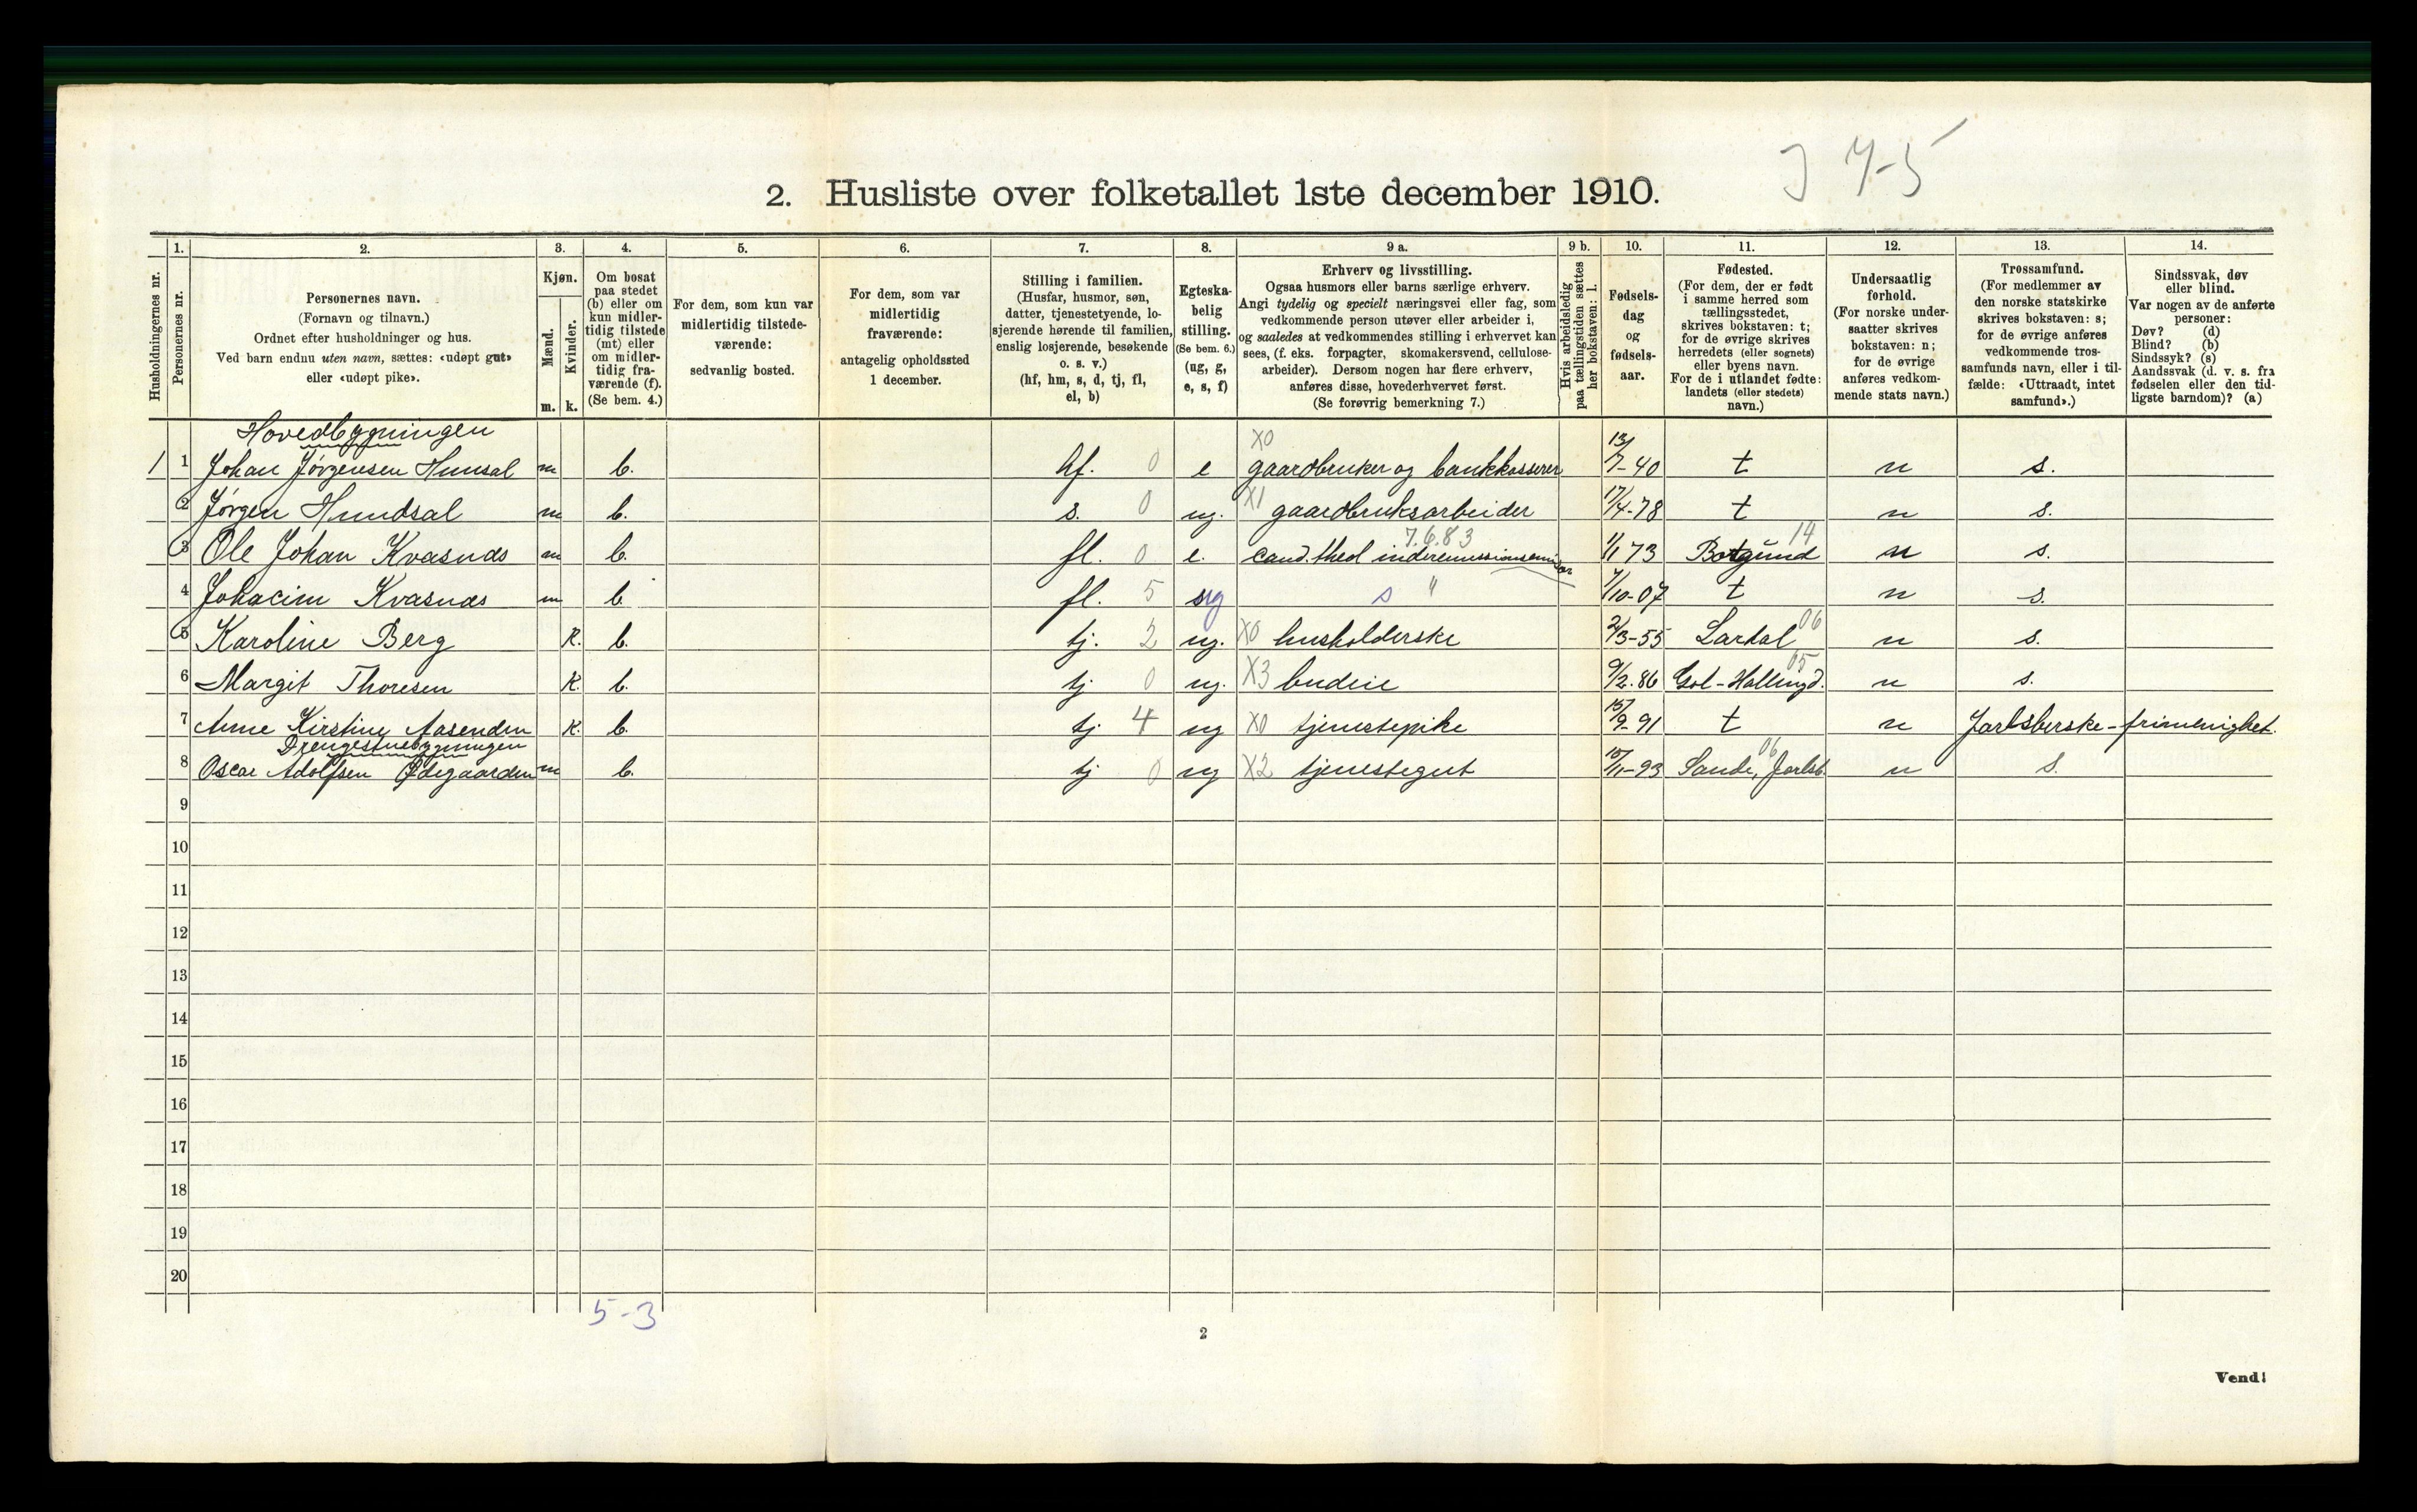 J 4-5
2. Husliste over folketallet 1ste december 1910.
Husholdningernes nr.
1.
Personernes nr.
2.
Personernes navn.
(Fornavn og tilnavn.)
Ordnet efter husholdninger og hus.
Ved barn endnu uten navn, sættes: «udøpt gut»
eller «udøpt pike».
3.
Kjøn.
Mænd.
Kvinder.
m. k.
4.
Om bosat
paa stedet
(b) eller om
kun midler-
tidig tilstede
(mt) eller
om midler-
tidig fra-
værende (f).
(Se bem. 4.)
5.
For dem, som kun var
midlertidig tilstede-
værende:
sedvanlig bosted.
6.
For dem, som var
midlertidig
fraværende:
antagelig opholdssted
1 december.
7.
Stilling i familien.
(Husfar, husmor, søn,
datter, tjenestetyende, lo-
sjerende hørende til familien,
enslig losjerende, besøkende
o. s. v.)
(hf, hm, s, d, tj, fl,
el, b)
8.
Egteska-
belig
stilling.
(Se bem. 6.)
(ug, g,
e, s, f)
9 a.
Erhverv og livsstilling.
Ogsaa husmors eller barns særlige erhverv.
Angi tydelig og specielt næringsvei eller fag, som
vedkommende person utøver eller arbeider i,
og saaledes at vedkommendes stilling i erhvervet kan
sees, (f. eks. forpagter, skomakersvend, cellulose-
arbeider). Dersom nogen har flere erhverv,
anføres disse, hovederhvervet først.
(Se forøvrig bemerkning 7.)
9 b.
Hvis arbeidsledig
paa tællingstiden sættes
her bokstaven: l.
10.
Fødsels-
dag
og
fødsels-
aar.
11.
Fødested.
(For dem, der er født
i samme herred som
tællingsstedet,
skrives bokstaven: t;
for de øvrige skrives
herredets (eller sognets)
eller byens navn.
For de i utlandet fødte:
landets (eller stedets)
navn.)
12.
Undersaatlig
forhold.
(For norske under-
saatter skrives
bokstaven: n;
for de øvrige
anføres vedkom-
mende stats navn.)
13.
Trossamfund.
(For medlemmer av
den norske statskirke
skrives bokstaven: s;
for de øvrige anføres
vedkommende tros-
samfunds navn, eller i til-
fælde: «Uttraadt, intet
samfund».)
14.
Sindssvak, døv
eller blind.
Var nogen av de anførte
personer:
Døv? (d)
Blind? (b)
Sindssyk? (s)
Aandssvak (d. v. s. fra
fødselen eller den tid-
ligste barndom)? (a)
Hovedbygningen
1 1 Johan Jørgensen Hunsal m b. hf. 0 e X0 gaardbruker og bankkasserer 13/7-40 t n s.
2 Jørgen Hundsal m b. s. 0 ug. X1 gaardbruksarbeider 17/4-78 t n s.
3 Ole Johan Kvasnæs m b. fl. 0 e. cand. theol 7.6.83 1/1 73 Borgund 14 n s.
4 Johacim Kvasnæs m b fl. 5 ug s " 7/10-07 t n s.
5 Karoline Berg K. b. tj. 2 ug. X0 husholderske 2/3-55 Lardal 06 n s.
6 Margit Thoresen K. b. tj 0 ug. X3 budeie 9/2.86 Gol-Hallingd. 05 n s.
7 Anne Kirstine Aasenden K. b. tj 4 ug X0 tjenestepike 15/9-91 t n Jarlsberske-frimenighet.
Drengestuebygningen
8 Oscar Adolfsen Ødegaarden m b. tj 0 ug X2 tjenestegut 15/11-93 Sande, Jarlsb. 06 n s.
9
10
11
12
13
14
15
16
17
18
19
20
5-3
2
Vend!